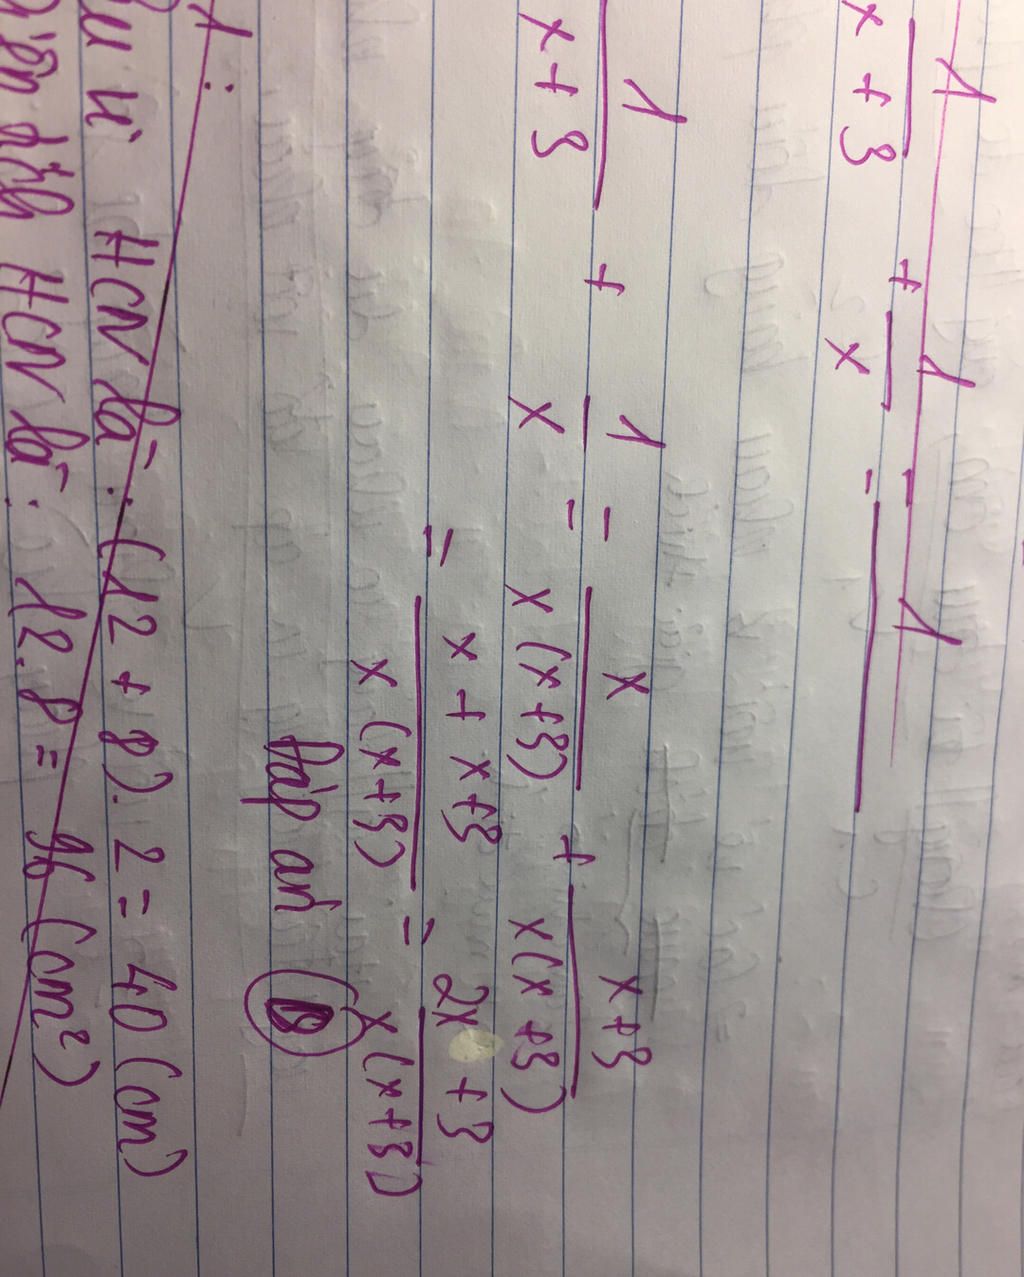 1/(x+3) + 1/x = 1/
1/(x+3) + 1/x = x/(x(x+3)) + (x+3)/(x(x+3))
= (x+x+3)/(x(x+3)) = (2x+3)/(x(x+3))
Đáp án B
vi HCN là: (12 + 8). 2 = 40 (cm)
Diện tích HCN là: 12. 8 = 96 (cm²)